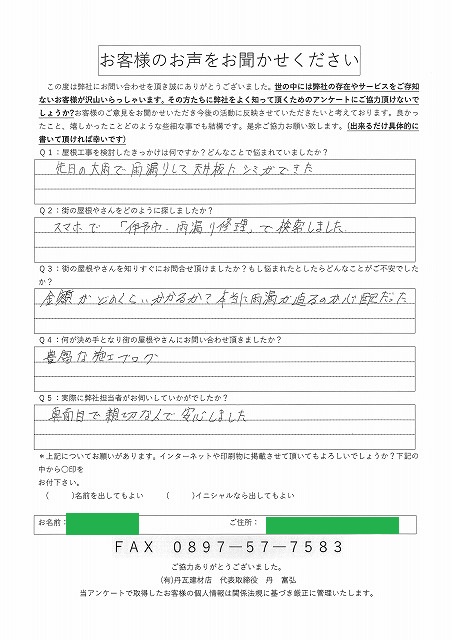 お客様のお声をお聞かせください
この度は弊社にお問い合わせを頂き誠にありがとうございました。世の中には弊社の存在やサービスをご存知
ないお客様が沢山いらっしゃいます。その方たちに弊社をよく知って頂くためのアンケートにご協力頂けないで
しょうか?お客様のご意見をお聞かせいただき今後の活動に反映させていただきたいと考えております。良かっ
たこと、嬉しかったことどのような些細な事でも結構です。是非ご協力お願い致します。(出来るだけ具体的に
書いて頂ければ幸いです)
Q1:屋根工事を検討したきっかけは何ですか?どんなことで悩まれていましたか?
先日の大雨で雨漏りして天井板にシミができた
Q2:街の屋根やさんをどのように探しましたか?
スマホで「伊予市 雨漏り修理」で検索しました
Q3:街の屋根やさんを知りすぐにお問合せ頂けましたか?もし悩まれたとしたらどんなことがご不安でした
か?
金額がどのくらいかかるか?本当に雨漏が直るのか心配だった
Q4:何が決め手となり街の屋根やさんにお問い合わせ頂きましたか?
豊富な施工ブログ
Q5:実際に弊社担当者がお伺いしていかがでしたか?
真面目で親切な人で安心しました
*上記についてお願いがあります。インターネットや印刷物に掲載させて頂いてもよろしいでしょうか?下記の
中から〇印を
お付下さい。
( )名前を出してもよい ( )イニシャルなら出してもよい
お名前: ご住所:
FAX 0897-57-7583
ご協力ありがとうございました。
(有)丹瓦建材店 代表取締役 丹 富弘
当アンケートで取得したお客様の個人情報は関係法規に基づき厳正に管理いたします。